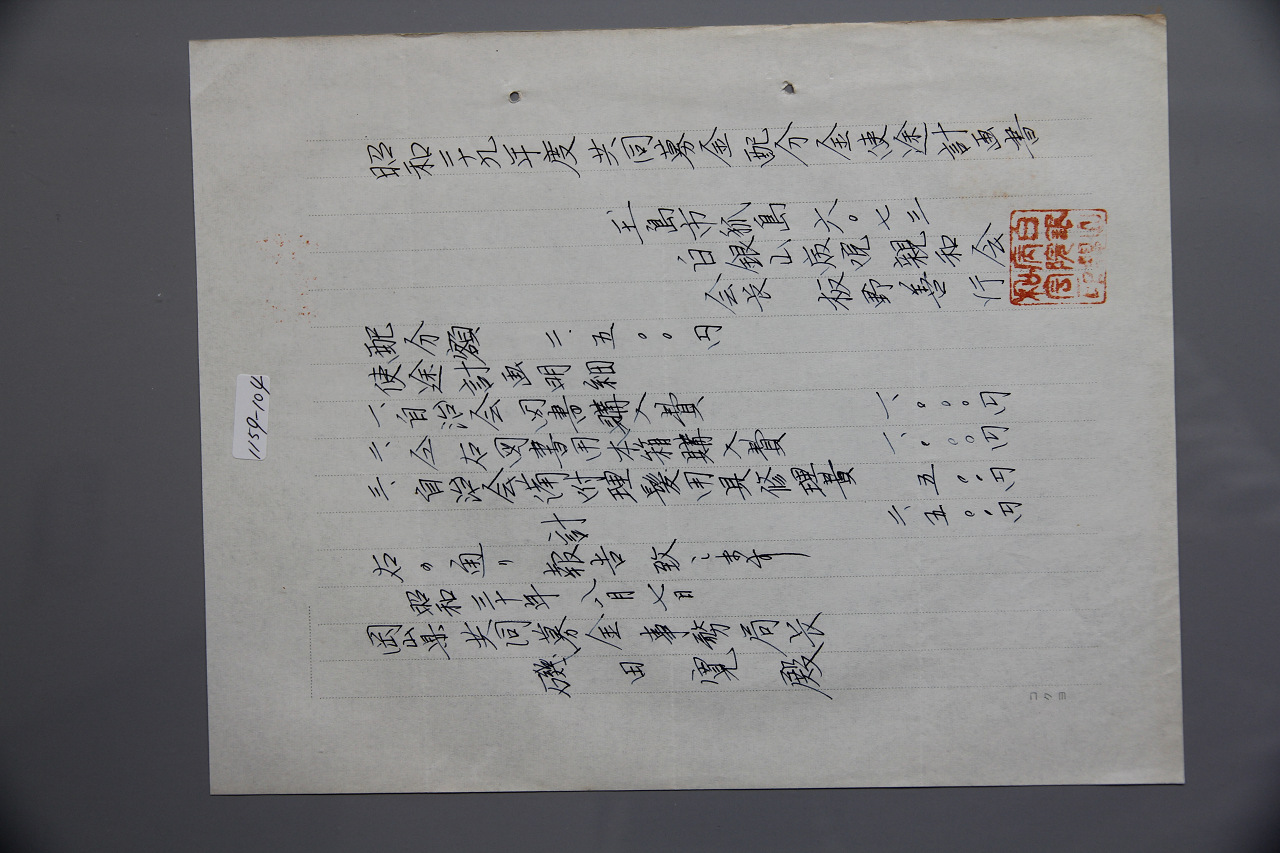 昭和二十九年度共同募金配分金使途計画書
玉島市狐島六〇七三
白銀山病院親和会
会長 板野善行
配分額 二、五〇〇円
使途計画明細
一、自治会図書購入費 一、〇〇〇円
二、仝右図書用本箱購入費 一、〇〇〇円
三、自治会備付理髪用具修理費 五〇〇円
計 二、五〇〇円
右の通り報告致します
昭和三十年八月七日
岡山県共同募金事務局長
磯田寛殿
コクヨ
1159-104